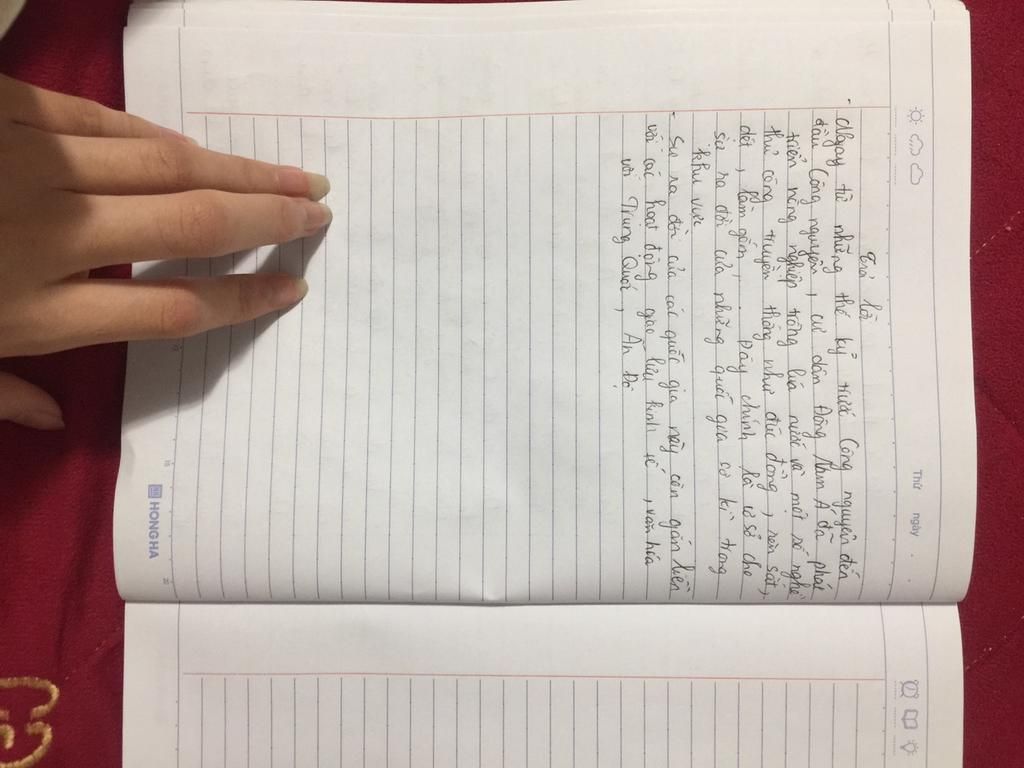 Thứ ngày
Trả lời
- Ngay từ những thế kỷ trước Công nguyên đến
đầu Công nguyên, cư dân Đông Nam Á đã phát
triển nông nghiệp trồng lúa nước và một số nghề
thủ công truyền thống như đúc đồng, rèn sắt,
dệt, làm gốm, Đây chính là cơ sở cho
sự ra đời của những quốc gia sơ kì trong
khu vực
- Sự ra đời của các quốc gia này còn gắn liền
với các hoạt động giao lưu kinh tế, văn hóa
với Trung Quốc, Ấn Độ
HONG HA
15
20